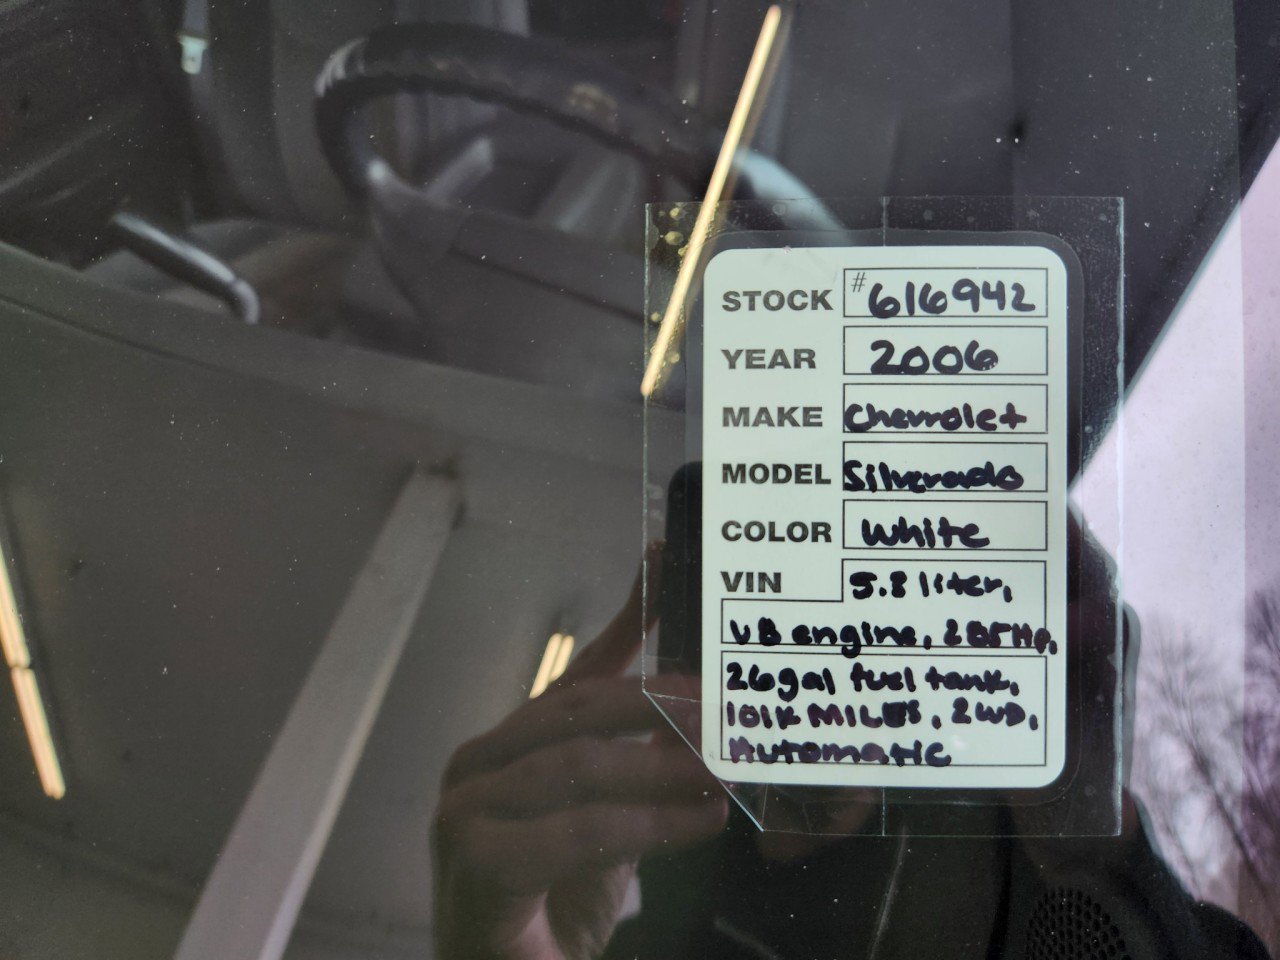 STOCK #616942
YEAR 2006
MAKE Chevrolet
MODEL Silverado
COLOR White
VIN 5.3 liter,
V8 engine, 285 Hp,
26gal fuel tank,
101K MILES, 2WD,
Automatic